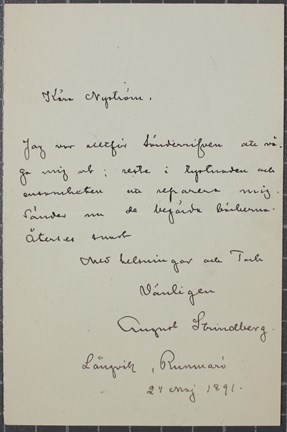 Käre Nyström,
Jag var alltför sönderrifven att vå-
ga mig ut; reste i tystnaden och
ensamheten att reparera mig.
Sänder nu de begärda böckerna.
Återses snart
Med helsningar och Tack
Vänligen
August Strindberg.
Långvik, Runmarö
24 Maj 1891.